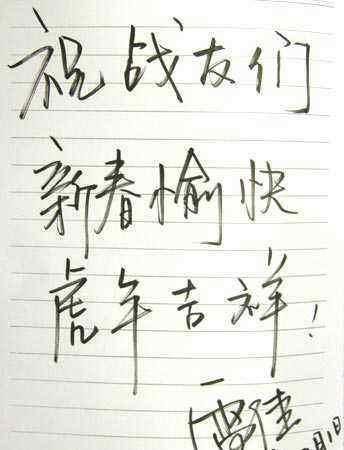 祝战友们
新春愉快
虎年吉祥！
雷佳
月1日